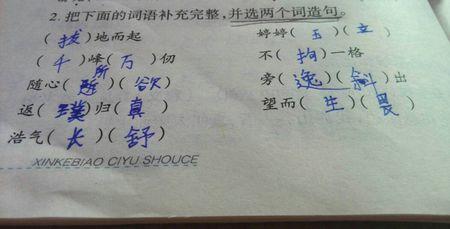 2. 把下面的词语补充完整,并选两个词造句。
(拔)地而起 婷婷(玉)(立)
(千)峰(万)仞 不(拘)一格
随心(所)(欲) 旁(逸)(斜)出
返(璞)归(真) 望而(生)(畏)
浩气(长)(舒)
XINKEBIAO CIYU SHOUCE